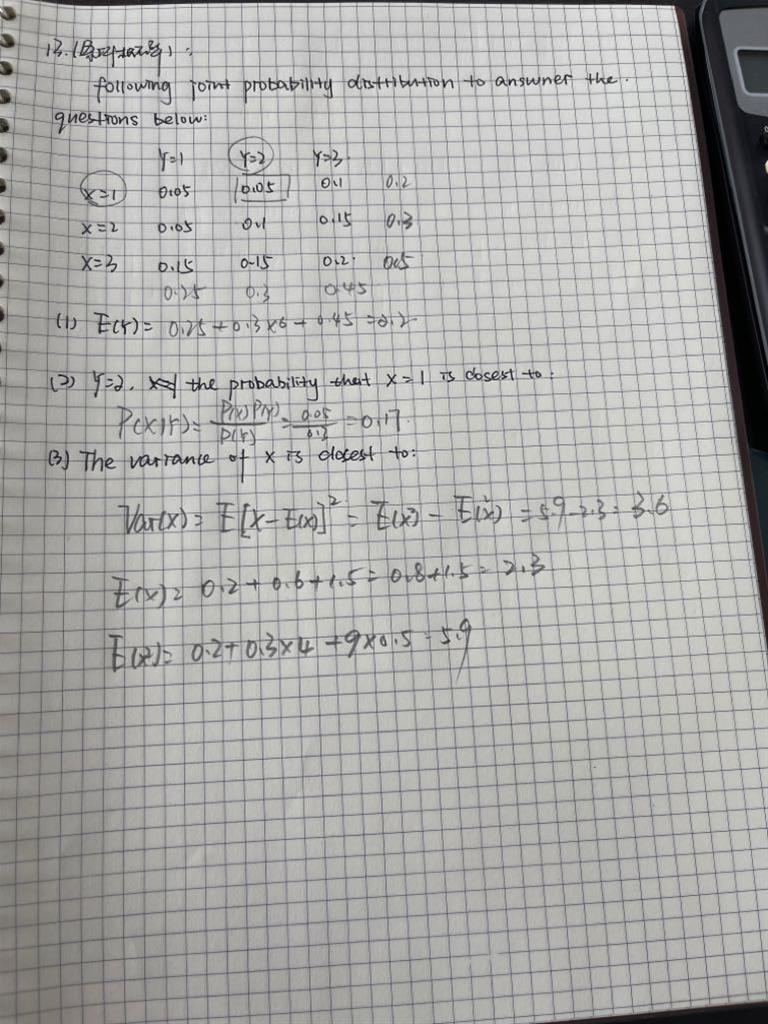 13.
following joint probability distribution to answner the
questions below:
Y=1 Y=2 Y=3
X=1 0.05 0.05 0.1 0.2
X=2 0.05 0.1 0.15 0.3
X=3 0.15 0.15 0.2 0.5
0.25 0.3 0.45
(1) E(Y)= 0.25+0.3×6+0.45=2.2
(2) Y=2. the probability that X=1 is closest to:
P(X|Y)= P(X)P(Y)/P(Y) = 0.05/0.3 =0.17
(3) The variance of X is closest to:
Var(X)= E[X-E(X)]² = E(X²) - E(X²) = 5.9-2.3= 3.6
E(X)= 0.2+0.6+1.5=0.8+1.5=2.3
E(X²)= 0.2+0.3×4+9×0.5=5.9